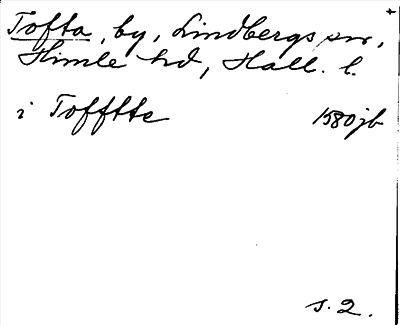 Tofta, by, Lindbergs sn,
Himle hd, Hall. l.
i Tofftte 1580 jb
s. 2.